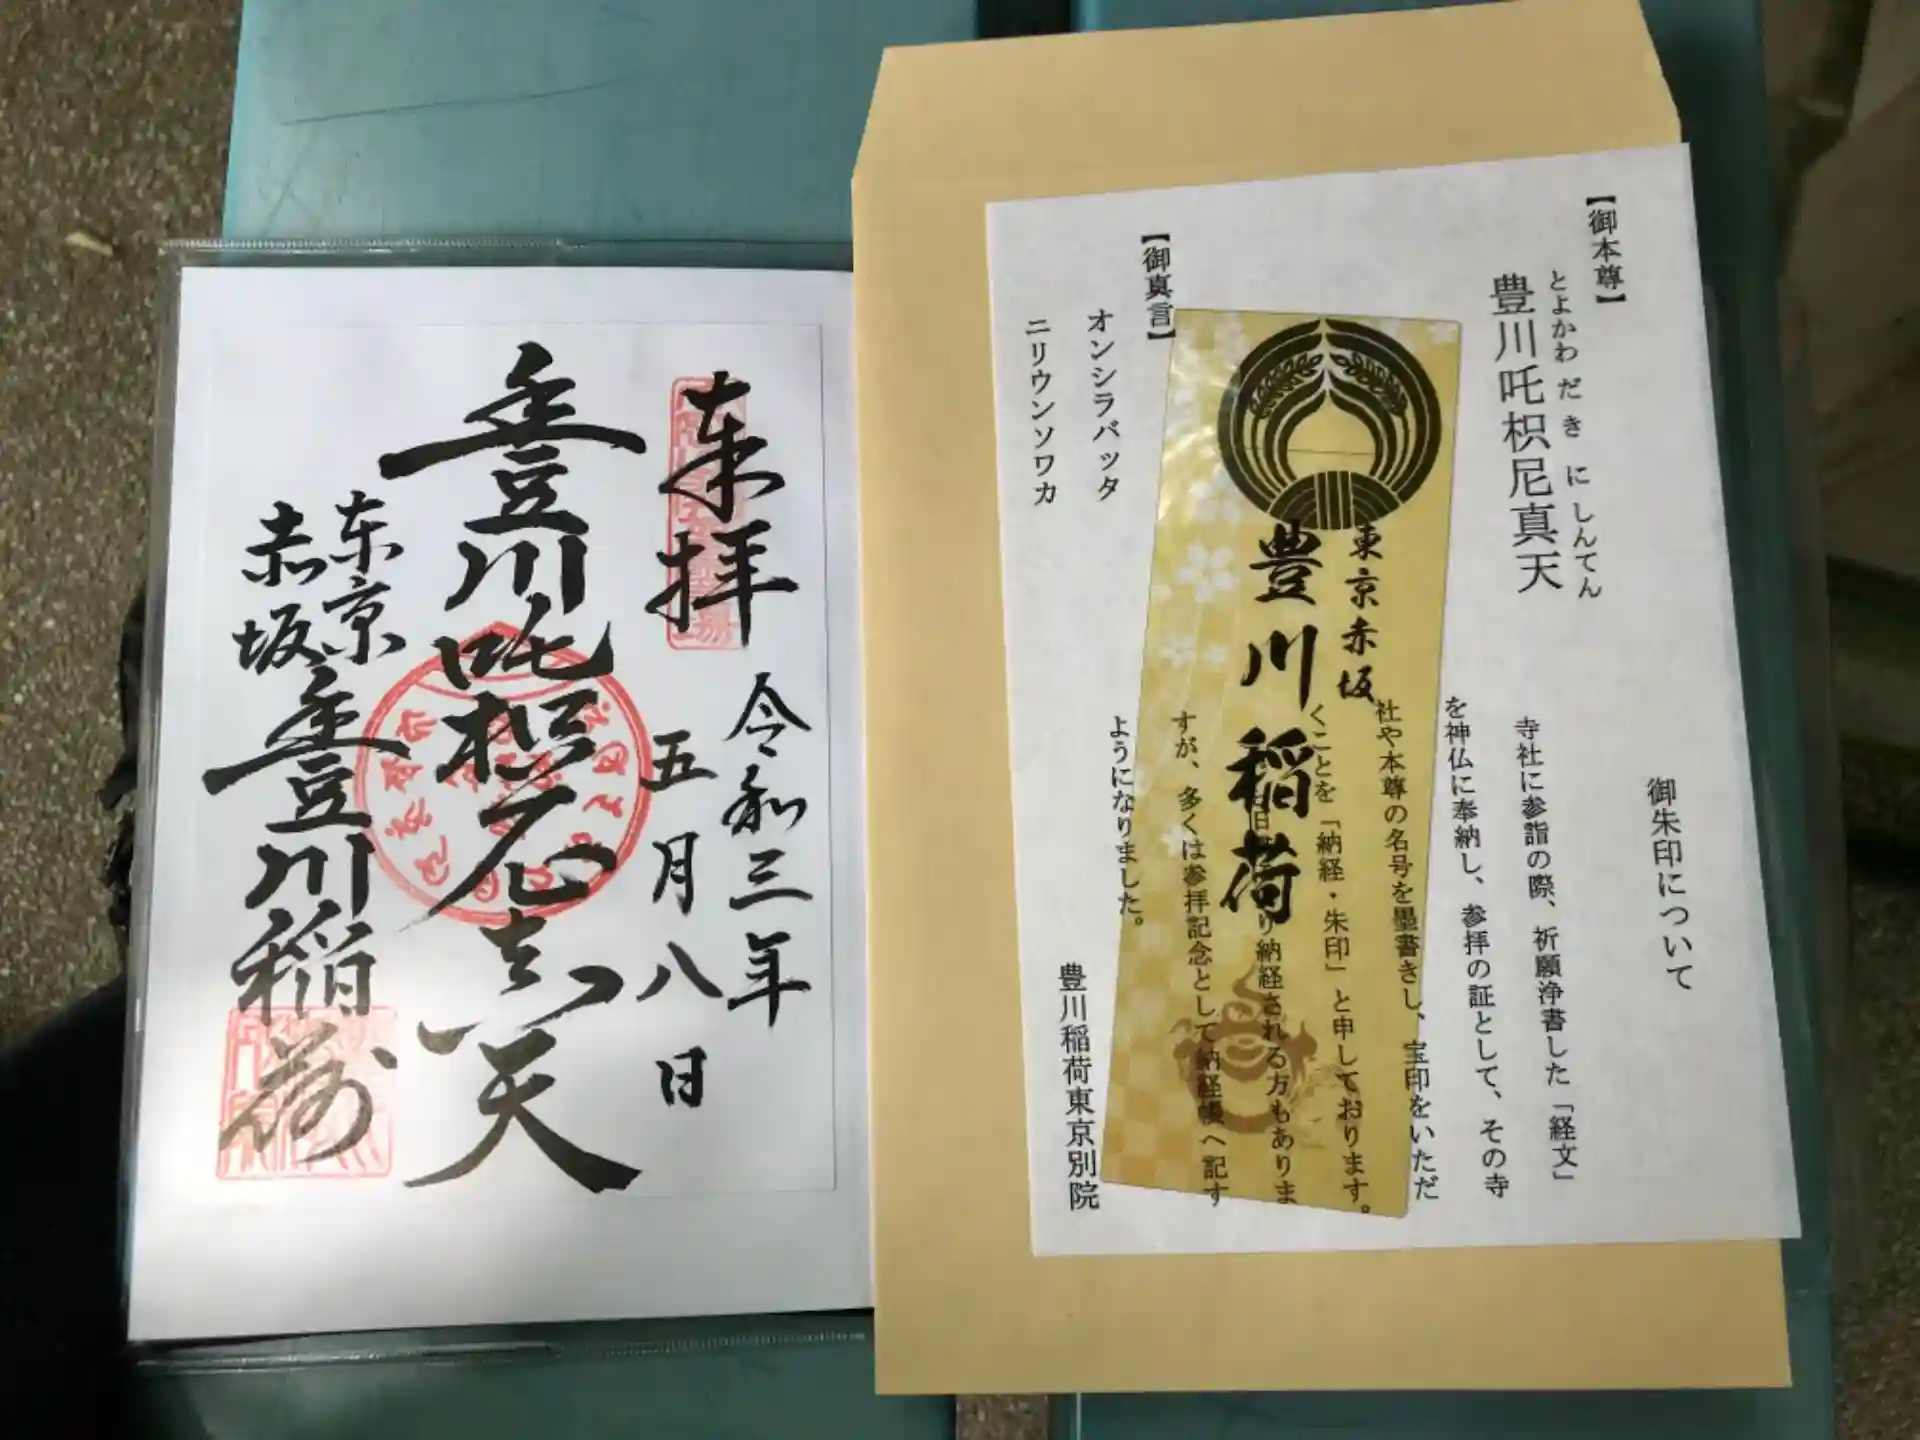 来拝
令和三年
五月八日
豊川吒枳尼真天
東京
赤坂
豊川稲荷
【御本尊】
とよかわ だ き に しんてん
豊川吒枳尼真天
【御真言】
オンシラバッタ
ニリウンソワカ
東京赤坂
豊川稲荷
御朱印について
寺社に参詣の際、祈願浄書した「経文」
を神仏に奉納し、参拝の証として、その寺
社や本尊の名号を墨書きし、宝印をいただ
くことを「納経・朱印」と申しております。
り納経される方もありま
すが、多くは参拝記念として納経帳へ記す
ようになりました。
豊川稲荷東京別院